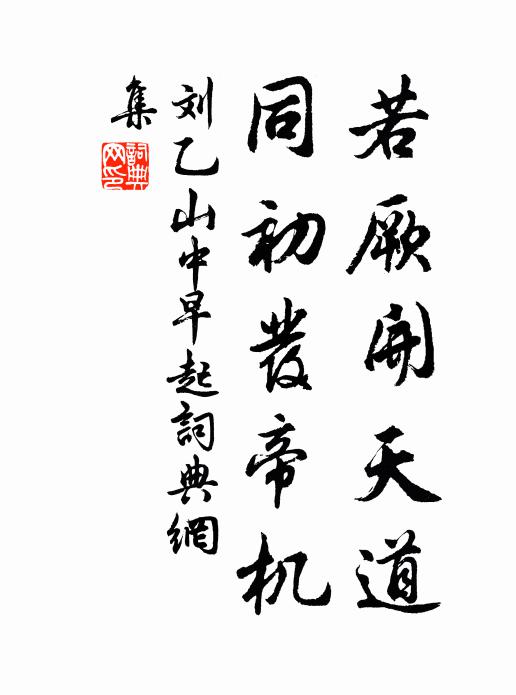 若厥開天道
同初發帝机
刘乙山中早起詞典網
集
詞典网印